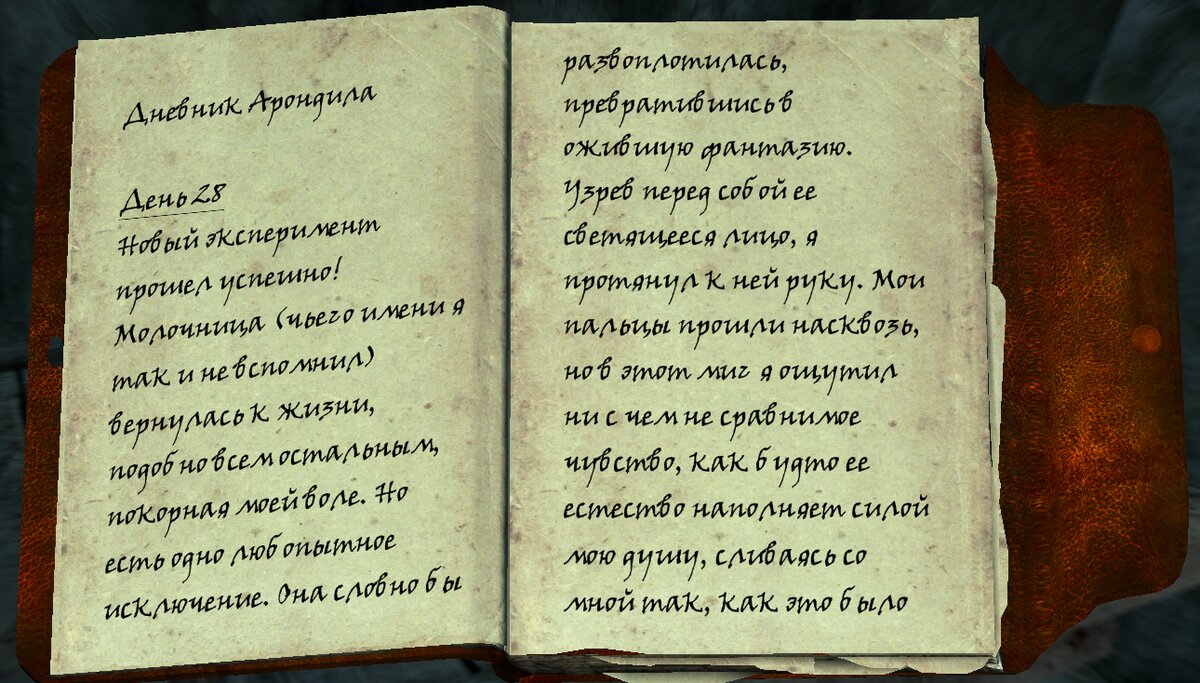 Дневник Арондила
День 28
Новый эксперимент
прошел успешно!
Молочница (чьего имени я
так и не вспомнил)
вернулась к жизни,
подобно всем остальным,
покорная моей воле. Но
есть одно любопытное
исключение. Она словно бы
развоплотилась,
превратившись в
ожившую фантазию.
Узрев перед собой ее
светящееся лицо, я
протянул к ней руку. Мои
пальцы прошли насквозь,
но в этот миг я ощутил
ни с чем не сравнимое
чувство, как будто ее
естество наполняет силой
мою душу, сливаясь со
мной так, как это было